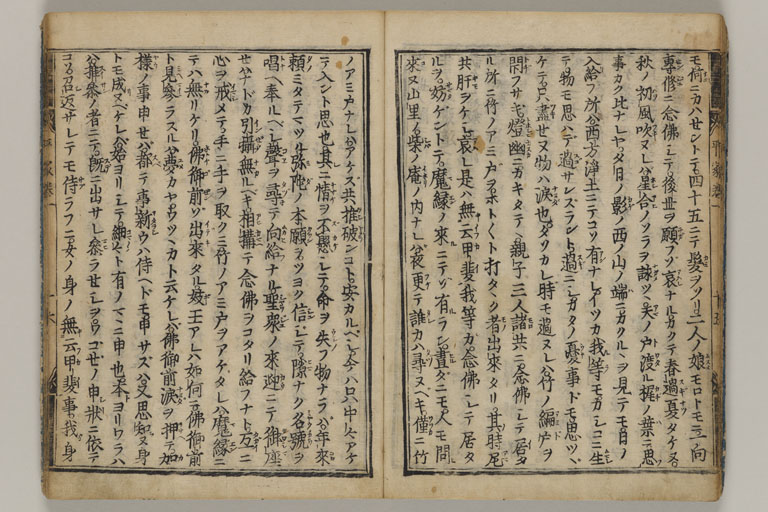 モ何ニカハセントテ四十五ニテ髪ヲソリ二人ノ娘モロトモニ一向
専修ニ念佛シテ後世ヲ願フソ哀ナルカクテ春過夏タケヌ
秋ノ初風吹ヌレハ星合ノソラヲ詠ツヽ天ノ戸渡ル梶ノ葉ニ思
事カク比ナレヤ夕日ノ影ノ西ノ山ノ端ニカクルヽヲ見テモ日ノ
入給フ所ハ西方浄土ニテコソ有ナレイツカ我等モカシコニ生
テ物モ思ハテ過サンズラント過ニシカタノ憂事ドモ思ツヽ
ケテ只盡セヌ物ハ涙也タソカレ時モ過ヌレハ竹ノ編戸ヲ
閉フサキ燈幽ニカキタテヽ親子三人諸共ニ念佛シテ居タ
ル所ニ竹ノアミ戸ヲホト〱ト打タヽク者出來タリ其時尼
共肝ヲケシ哀レ是ハ無云甲斐我等カ念佛シテ居タ
ルヲ妨ケントテ魔縁ノ來ニテソ有ラン晝タニモ人モ問
來ヌ山里ノ柴ノ庵ノ内ナレハ夜更テ誰カハ尋ヌヘキ僅ニ竹
ノアミ戸ナレハアケス共推破ンコト安カルベシ今ハ只中々アケ
テ入ント思也其ニ情ヲ不懸シテ命ヲ失フ物ナラハ年來
頼ミタテマツル弥陀ノ本願ヲツヨク信シテ隙ナク名號ヲ
唱ヘ奉ルベシ聲ヲ尋テ向給ナル聖衆ノ來迎ニテ御座
セハナドカ引攝無ルベキ相搆テ念佛ヲコタリ給フナト互ニ
心ヲ戒メテ手ニ手ヲ取クミ竹ノアミ戸ヲアケタレハ魔縁ニ
テハ無リケリ佛御前ソ出來タル妓王アレハ如何ニ佛御前
ト見參ラスルハ夢カヤウツヽカト云ケレハ佛御前涙ヲ押テ加
樣ノ事申セハ都テ事新ウハ侍ヘドモ申サズハ又思知ヌ身
トモ成ヌベケレハ始ヨリシテ細々ト有ノマヽニ申也本ヨリワラハ
ハ推參ノ者ニテ既ニ出サレ參ラセシヲワコゼノ申状ニ依テ
コソ召返サレテモ侍ラフニ女ノ身ノ無云甲斐事我身